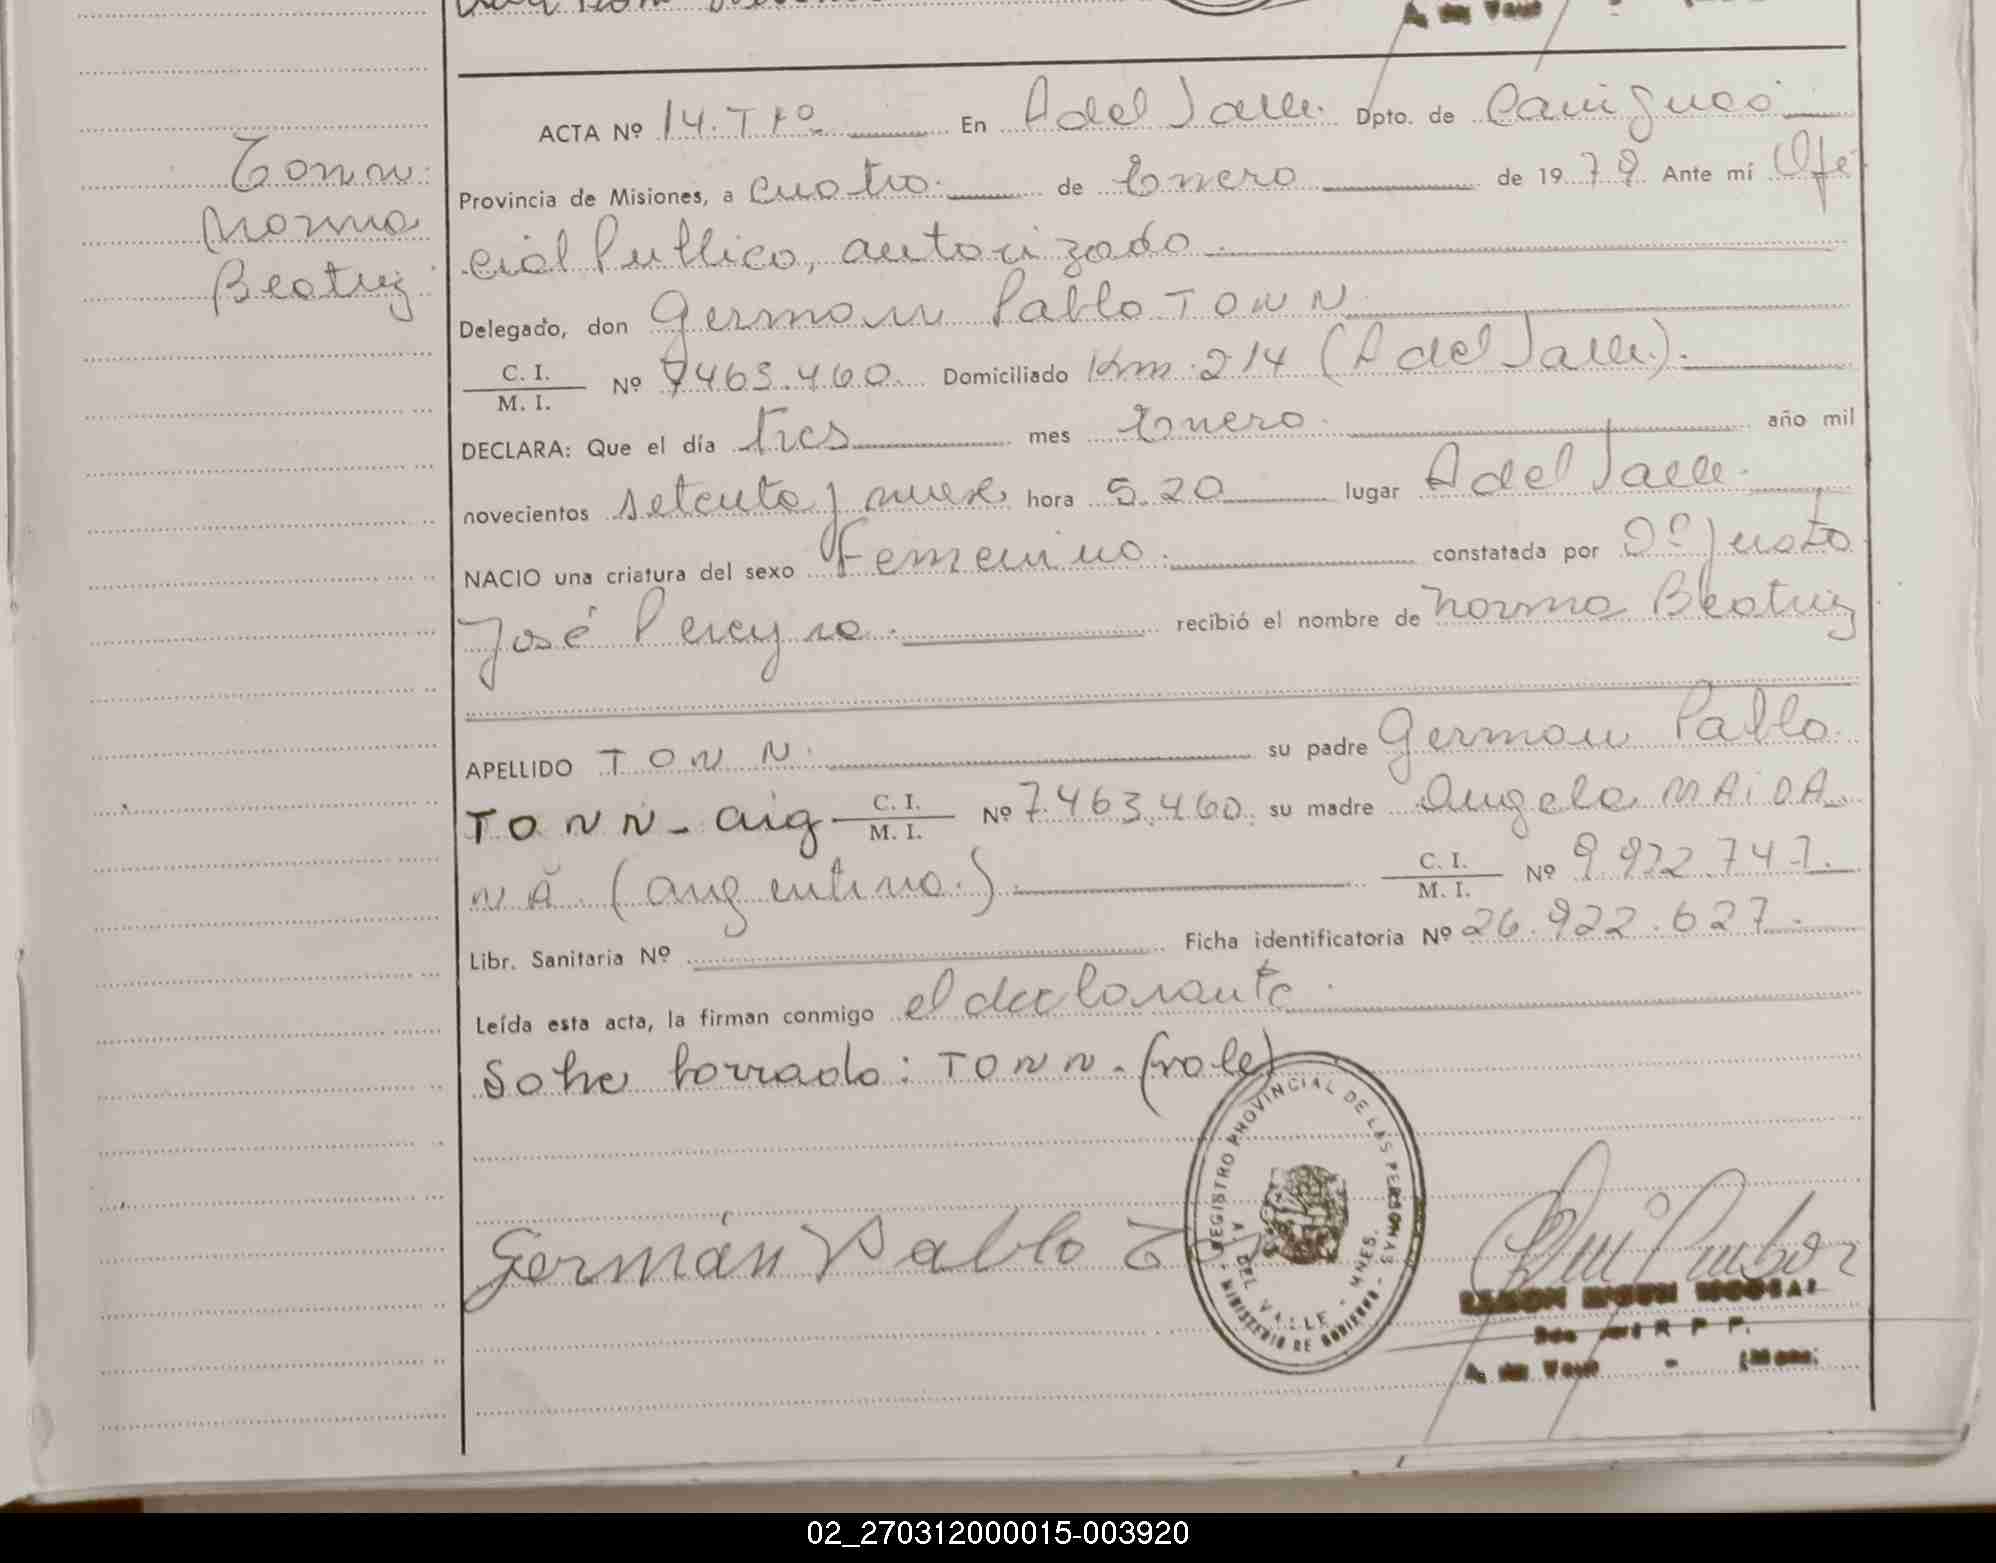 Tonn
Norma
Beatriz
ACTA Nº 14. Tº En A del Valle. Dpto. de Cainguas
Provincia de Misiones, a cuatro. de Enero de 1979 Ante mí Ofi
cial Publico, autorizado
Delegado, don German Pablo TONN
C. I.
M. I. Nº 7463.460. Domiciliado Km 214 (A del Valle).
DECLARA: Que el día tres mes Enero. año mil
novecientos setenta y nueve hora 5.20 lugar A del Valle.
NACIO una criatura del sexo Femenino. constatada por Dº Justo
José Pereyra. recibió el nombre de Norma Beatriz
APELLIDO TONN. su padre German Pablo
TONN - arg C. I.
M. I. Nº 7.463.460. su madre Angela MAIDA
NA. (argentina.) C. I.
M. I. Nº 9.922.747.
Libr. Sanitaria Nº Ficha identificatoria Nº 26.922.627.
Leída esta acta, la firman conmigo el declarante.
Sobre borrado: TONN. (vale)
Germán Pablo
REGISTRO PROVINCIAL DE LAS PERSONAS
A. DEL VALLE - MNES.
MINISTERIO DE GOBIERNO
R P P.
02_270312000015-003920